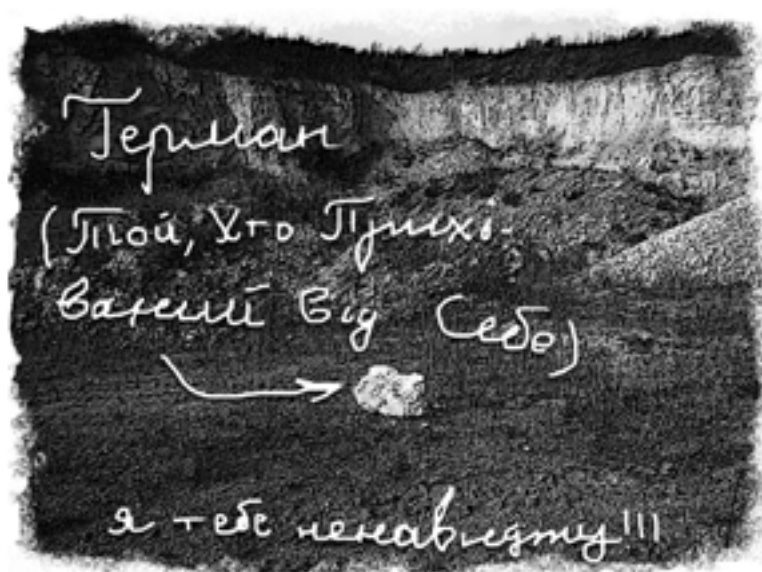 Герман
(Той, Хто Прихо-
ваний Від Себе)
я тебе ненавиджу!!!